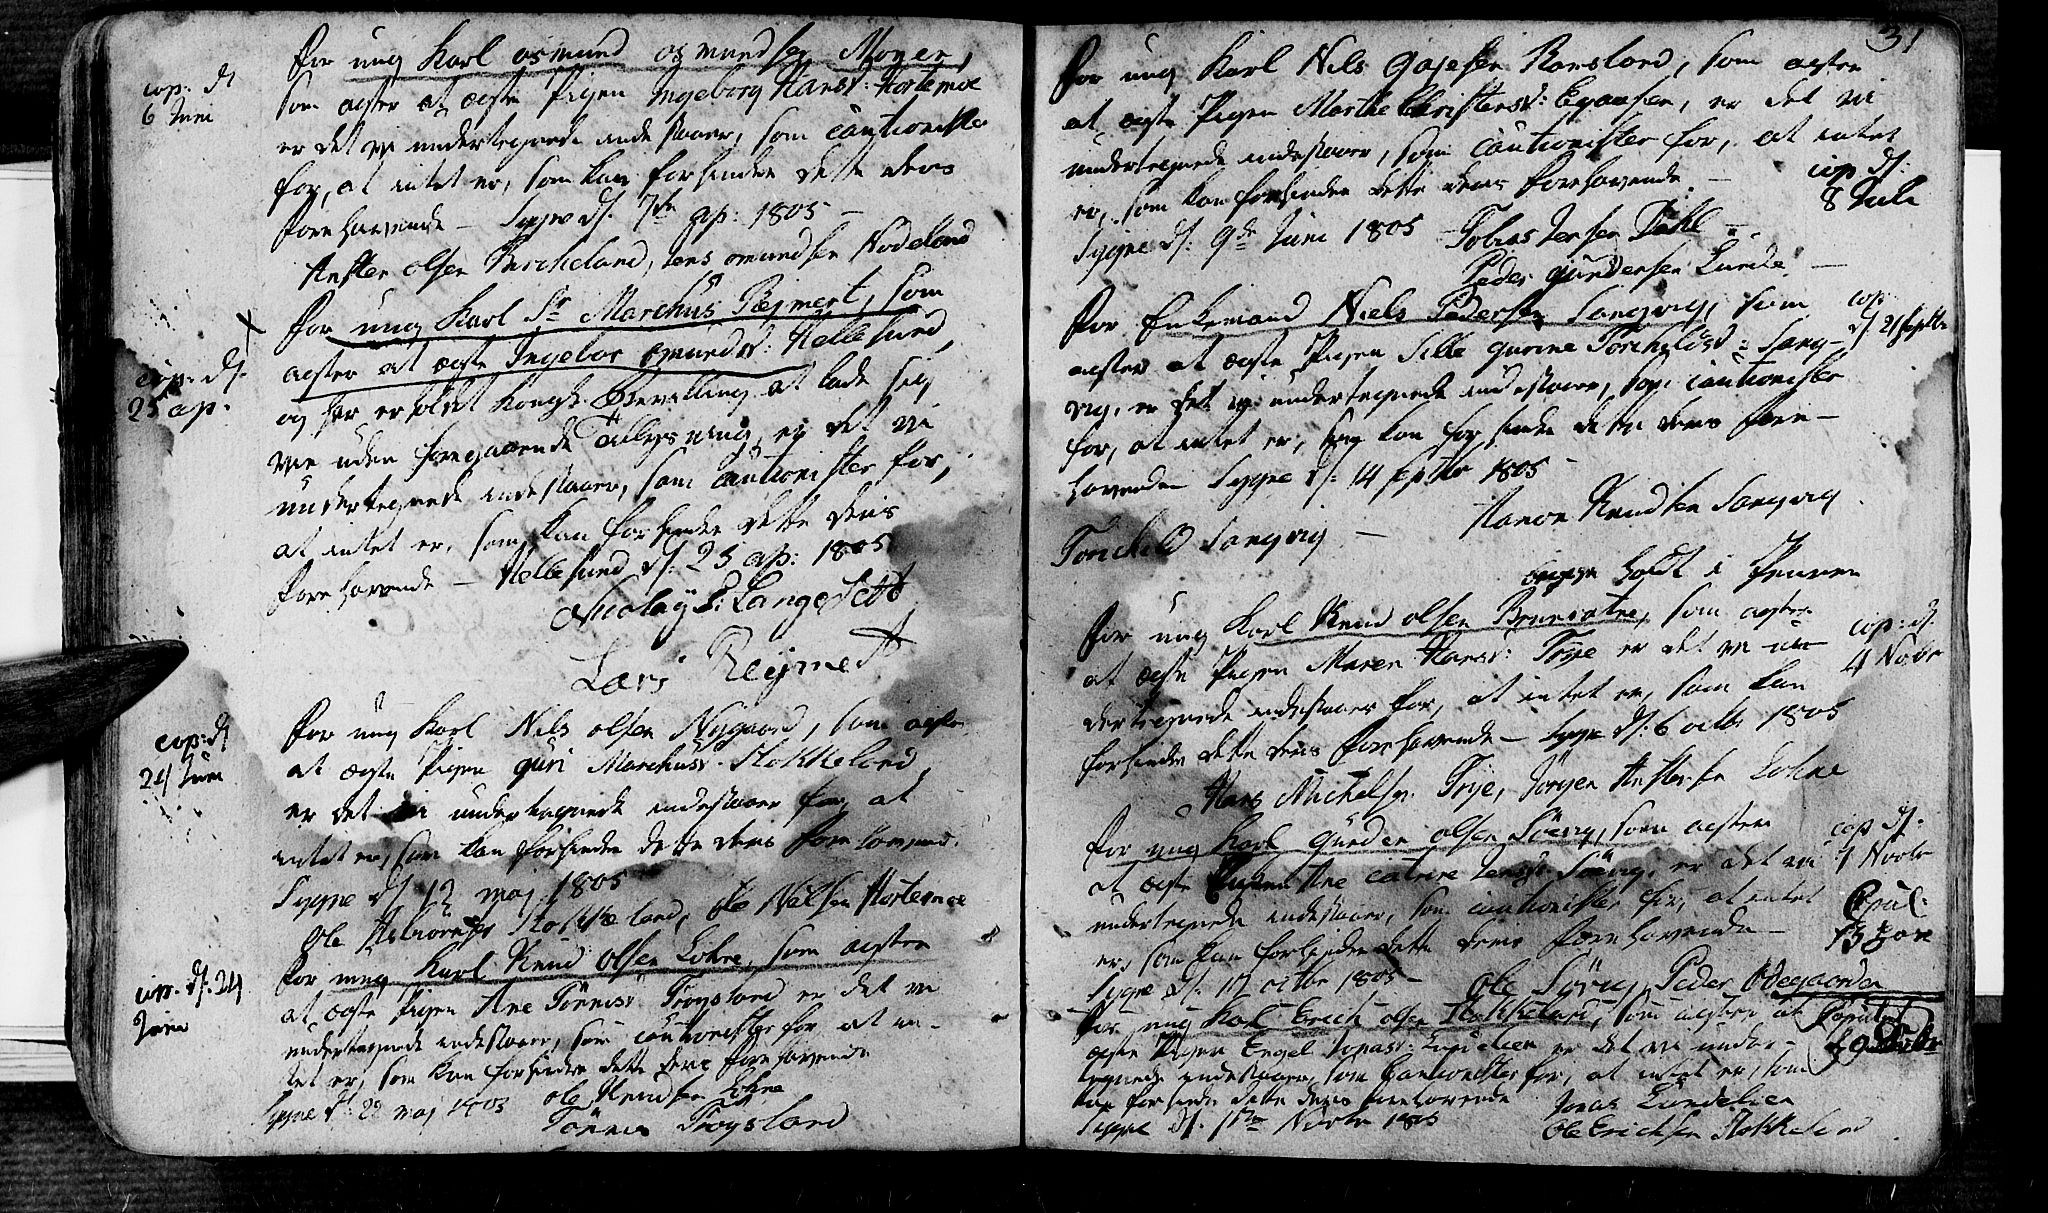 for ung Karl osmund osmundsen Moyer,
cop. d
6 Juni
som agter at ægte Pigen Ingeborg Hansd: Hortemoe
er det vi undertegnede indestaaer, som cautionister
for, at intet er, som kan forhindre dette deres
forehavende – Sygne d. 7de ap: 1805 –
Ansten olsen Birkeland, Jens omundsen Nodeland
for ung Karl Sr Marchus Reymert, som
agter at ægte Ingebor Omundsd: Hellesund,
cop. d.
25 ap.
og har erholdt Kongl. Bevilling at lade sig
vie uden foregaaende Tillysning, er det vi
undertegnede indestaaer, som cautionister for,
at intet er, som kan forhindre dette deres
forehavende – Hellesund d: 25 ap: 1805
Nicolay S: Langefeldt
Lars Reijmert
for ung Karl Nils olsen Nygaard, som agter
cop: d
24 Juni
at ægte Pigen Guri Marchusd. Stokkeland,
er det vi undertegnede indestaaer for, at
intet er, som kan forhindre dette deres forehavende.
Sygne d 12 maj 1805
Ole Asbiørnsen Stokkeland, Ole Nielsen Hortemoe
for ung Karl Knud olsen Lohne, som agter
cop. d. 24
Juni
at ægte Pigen Ane Tønnesd Trogsland er det vi
undertegnede indestaaer, som cautionister for at in-
tet er, som kan forhindre dette deres forehavende
Sygne d: 29 maj 1805 ole Knudsen Lohne
Tønnes Trogsland
31
for ung Karl Nils Gajesen Ransland, som agter
at ægte Pigen Marthe Christensd: Egaasen, er det vi
undertegnede indestaaer, som Cautionister for, at intet
er, som kan forhindre dette deres forehavende. –
cop d.
8 Juli
Sygne d: 9de Juni 1805 Tobias Jensen Dahl –
Peder gundersen Lunde –
for Enkemand Niels Pedersen Langvig, som
cop.
d. 21 Septbr
agter at ægte Pigen Sille gurine Torchildsd: Lang-
vig, er det vi undertegnede indestaaer, som cautionister
for, at intet er, som kan forhindre dette deres fore-
havende Sygne d: 14 septbr 1805
Aanon Knudsen Langvig
Torchild Langvig –
holdt i
for ung Karl Knud olsen Brunvatne, som agter
cop: d.
4 Novbr
at ægte Pigen Maren Hansd: Trye er det vi un-
dertegnede indestaaer for, at intet er, som kan
forhindre dette deres forehavende – Sygne d: 6 octbr 1805
Hans Michelsen Trye, Jørgen Anstensen Lohne
for ung Karl Gunder olsen Søvig, som agter
cop d.
4 Novbr
at ægte Pigen Ane Catrine Jensd: Søvig, er det vi
undertegnede indestaaer, som cautionister for, at intet
Copul:
er, som kan forhindre dette deres forehavende –
Sygne d: 17 octbr 1805 – Ole Søvig, Peder Ødegaarden
for ung Karl Erich olsen Stokkeland, som agter at
Copuleret
ægte Pigen Engel Jonasd: Lundelien er det vi under-
tegnede indestaaer, som Cautionister for, at intet er, som
kan forhindre dette deres forehavende Jonas Lundelien
Sygne d. 1de Novbr 1805 Ole Erichsen Stokkeland